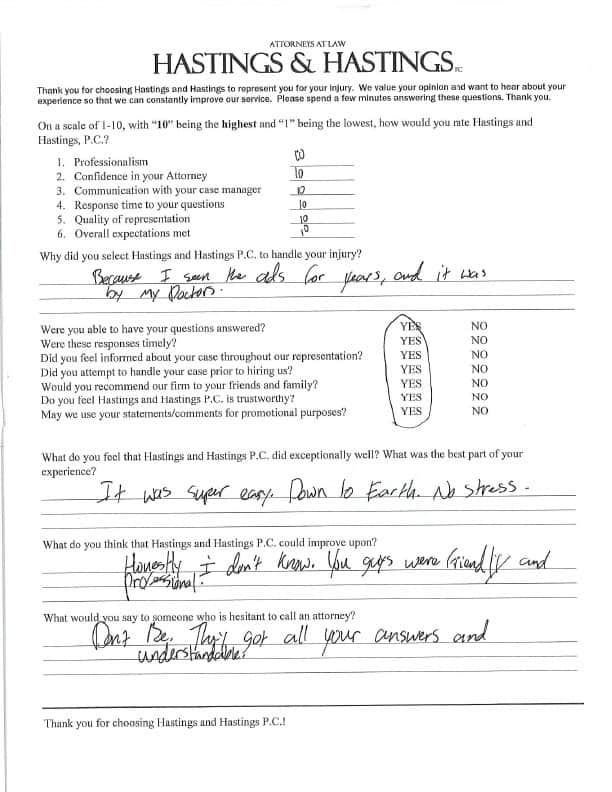 ATTORNEYS AT LAW
HASTINGS & HASTINGS PC
Thank you for choosing Hastings and Hastings to represent you for your injury. We value your opinion and want to hear about your
experience so that we can constantly improve our service. Please spend a few minutes answering these questions. Thank you.
On a scale of 1-10, with "10" being the highest and "1" being the lowest, how would you rate Hastings and
Hastings, P.C.?
1. Professionalism 10
2. Confidence in your Attorney 10
3. Communication with your case manager 10
4. Response time to your questions 10
5. Quality of representation 10
6. Overall expectations met 10
Why did you select Hastings and Hastings P.C. to handle your injury?
Because I seen the ads for years, and it was
by my Doctors.
Were you able to have your questions answered? YES NO
Were these responses timely? YES NO
Did you feel informed about your case throughout our representation? YES NO
Did you attempt to handle your case prior to hiring us? YES NO
Would you recommend our firm to your friends and family? YES NO
Do you feel Hastings and Hastings P.C. is trustworthy? YES NO
May we use your statements/comments for promotional purposes? YES NO
What do you feel that Hastings and Hastings P.C. did exceptionally well? What was the best part of your
experience?
It was super easy. Down to Earth. No stress.
What do you think that Hastings and Hastings P.C. could improve upon?
Honestly I don't know. You guys were friendly and
professional.
What would you say to someone who is hesitant to call an attorney?
Don't Be. They got all your answers and
understandable.
Thank you for choosing Hastings and Hastings P.C.!